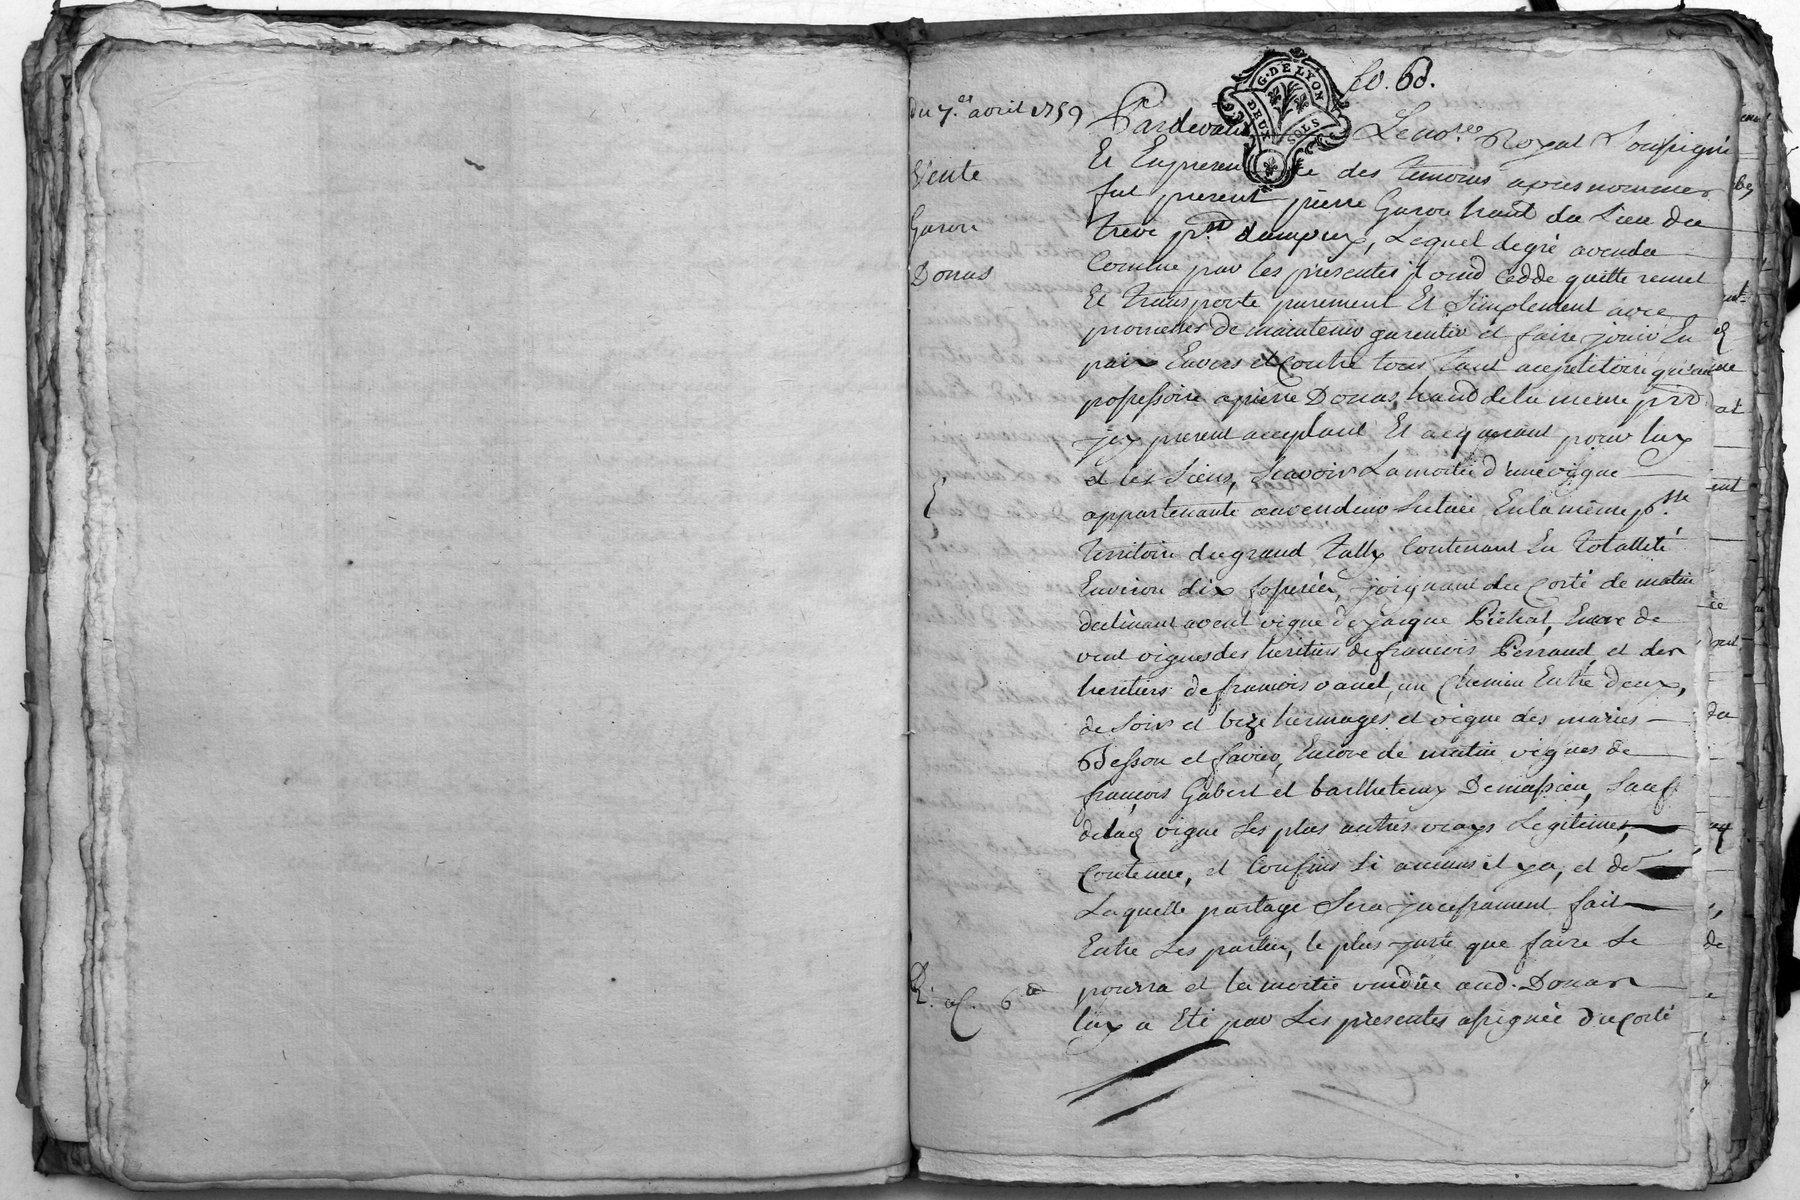 fo. 60.
G. DE LYON
DEUX SOLS
du 7.e avril 1759
Vente
Garon
Donas
Pardevant Le no.re Royal Soussigné
Et En presence des temoins apres nommes
fut present pierre Garon hant du Lieu du
Treve p.sse dampuy, Lequel de gré a vendu
Comme par les presentes il vend cedde quitte remet
Et transporte purement Et Simplement avec
promesses de maintenir garentir et faire jouir En
paix Envers et Contre tous tant au petitoire qu'au
possessoire a pierre Donas, hant de la meme p.sse
jcy present acceptant Et acquerant pour luy
et les Siens, Scavoir La moitié d'une vigne
appartenante au vendeur Scituée En la même p.sse
Territoire du grand Contenant En totallité
Environ dix fosserées, joignant du Costé de matin
declinant a vent vigne de jacque Pichat, Encore de
vent vignes des heritiers de francois Perraud et des
heritiers de francois vanel, un Chemin Entre deux,
de Soir et bize hermages et vigne des maries
Besson et favier, Encore de matin vignes de
françois Gabert et barthelemy Demassieu, Sauf
de lad vigne Ses plus autres vrays Legitimes,
Contenue, et Confins Si aucuns il y a, et de
Laquelle partage Sera jncessament fait
Entre Les parties, le plus juste que faire Se
pourra et la moitié vendue aud. Donas
luy a Eté par Les presentes assignée du Costé